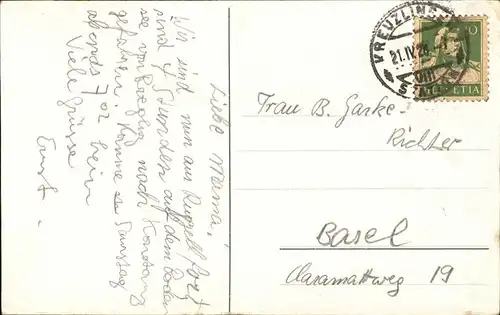 Liebe Mama,
Wir sind nun aus Ruggell fort
sind 4 Stunden auf dem Boden
see von Bregenz nach Konstanz
gefahren. Komme am Samstag
abends 7 02 heim
Viele Grüsse
Ernst.
KREUZLINGEN
21.IV.26
VIII
HELVETIA
10
Frau B. Garke-
Richter
Basel
Claramattweg 19